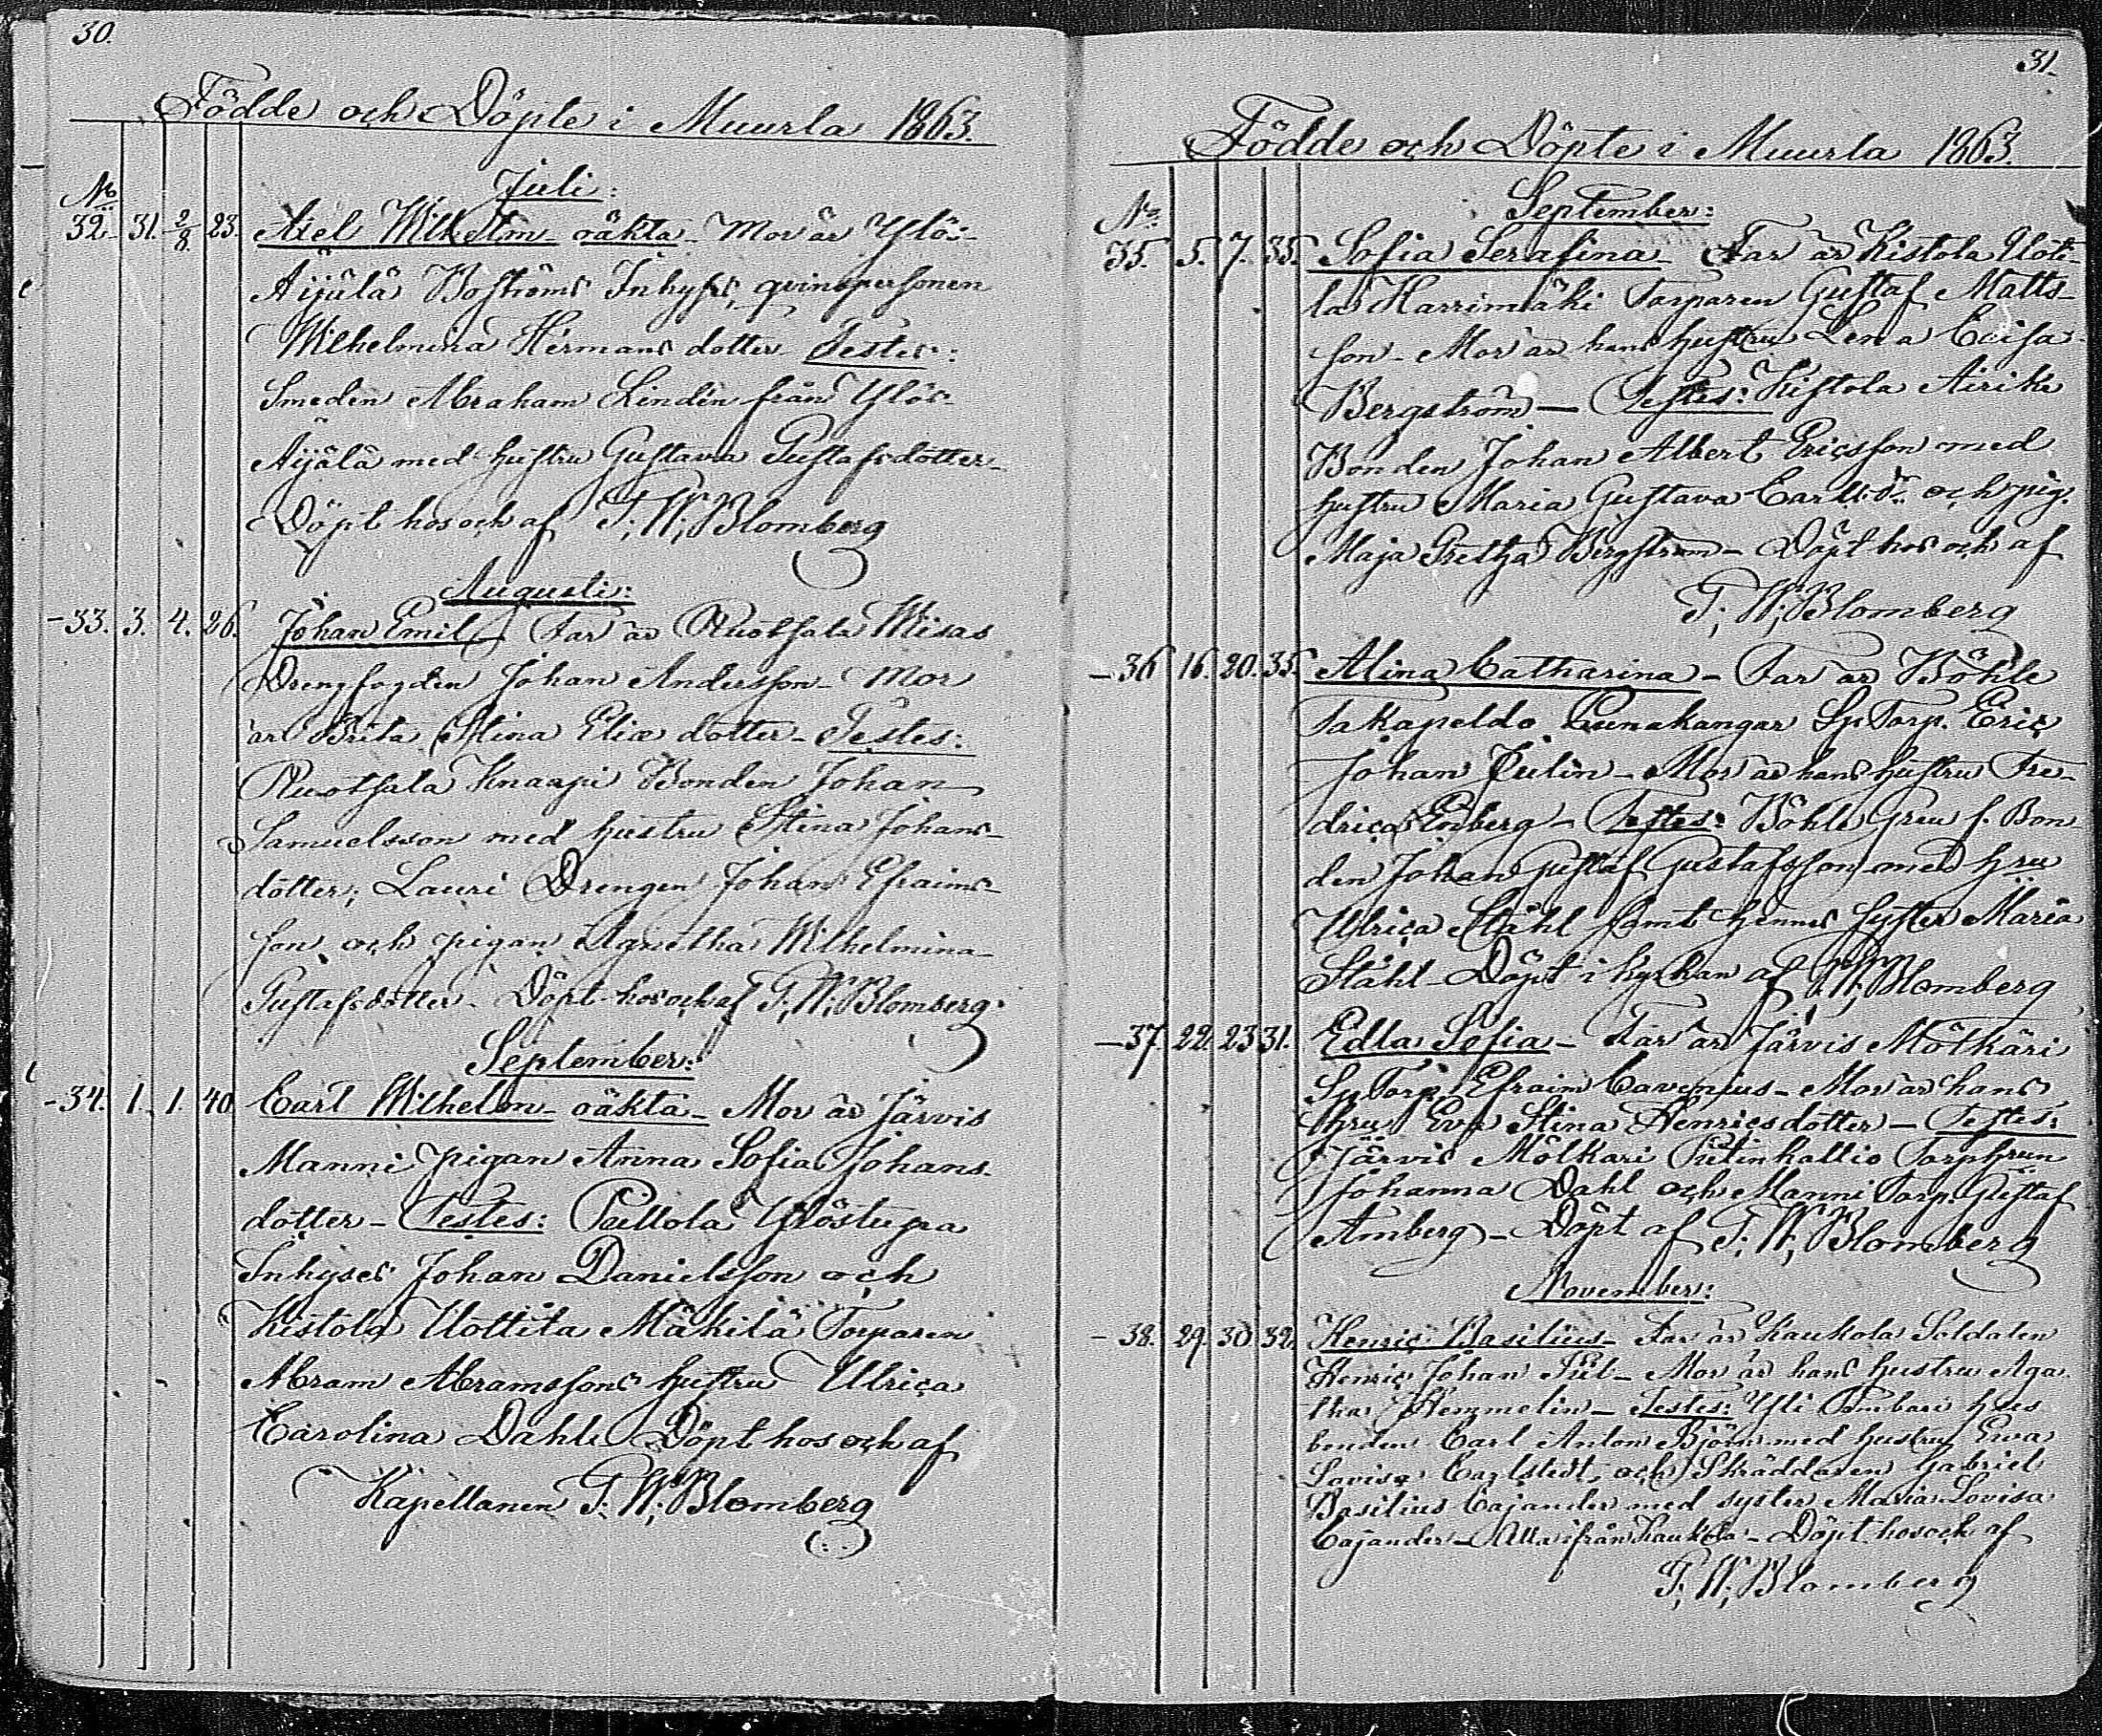 30.
Födde och Döpte i Muurla 1863.
Juli:
No
32. 31. 2/8 23. Axel Wilhelm - oäkta - Mor är Ylös-
Äijälä Boströms Inhyses qvinspersonen
Wilhelmina Hermans dotter - Testes:
Smeden Abraham Lindén från Ylös-
Äijälä med hustru Gustava Gustafsdotter -
Döpt hos och af F: W: Blomberg
Augusti:
- 33. 3. 4. 26. Johan Emil - Far är Ruotsala Misas
Drengfogden Johan Andersson - Mor
är Brita Stina Eliæ dotter - Testes:
Ruotsala Knaapi Bonden Johan
Samuelsson med hustru Stina Johans-
dotter; Lauri Drengen Johan Efraims-
son och pigan Agnetha Wilhelmina
Gustafsdotter - Döpt hos och af F: W: Blomberg.
September:
- 34. 1. 1. 40. Carl Wilhelm - oäkta - Mor är Järvis
Manni pigan Anna Sofia Johans-
dotter - Testes: Paillola Ylöstupa
Inhyses Johan Danielsson och
Kistola Uottila Mäkilä Torparen
Abram Abramssons hustru Ulrica
Carolina Dahl - Döpt hos och af
Kapellanen F: W: Blomberg
31.
Födde och Döpte i Muurla 1863.
September:
No
35. 5. 7. 35. Sofia Serafina - Far är Kistola Uoti-
la Harrimäki Torparen Gustaf Matts-
son - Mor är hans hustru Lena Caisa
Bergström - Testes: Kistola Airiks
Bonden Johan Albert Ericsson med
hustru Maria Gustava Carlsdr och pig.
Maja Gretha Bergström - Döpt hos och af
F: W: Blomberg
- 36. 16. 20. 35. Alina Catharina - Far är Böhle
Takapeldo Punakangas Sp Torp. Eric
Johan Julin - Mor är hans hustru Fre-
drica Enberg - Testes: Böhle Greu f. Bon-
den Johan Gustaf Gustafsson med hru
Ulrica Ståhl samt hennes syster Maria
Ståhl - Döpt i kyrkan af F: W: Blomberg
- 37. 22. 23. 31. Edla Sofia - Far är Järvis Mölkäri
Sp Torp. Efraim Cavenius - Mor är hans
hru Eva Stina Henricsdotter - Testes:
Järvis Mölkäri Torphrun
Johanna Dahl och Manni Torp. Gustaf
Amberg - Döpt af F: W: Blomberg
November:
- 38. 29. 30. 32. Henric Basilius - Far är Kaukola Soldaten
Henric Johan Pil - Mor är hans hustru Aga-
tha Hemmelin - Testes: Yli Pambari hus
bonden Carl Anton Björn med hustru Ewa
Lovisa Carlstedt, och Skräddaren Gabriel
Basilius Cajander med syster Maria Lovisa
Cajander - Alla ifrån Kaukola - Döpt hos och af
F: W: Blomberg